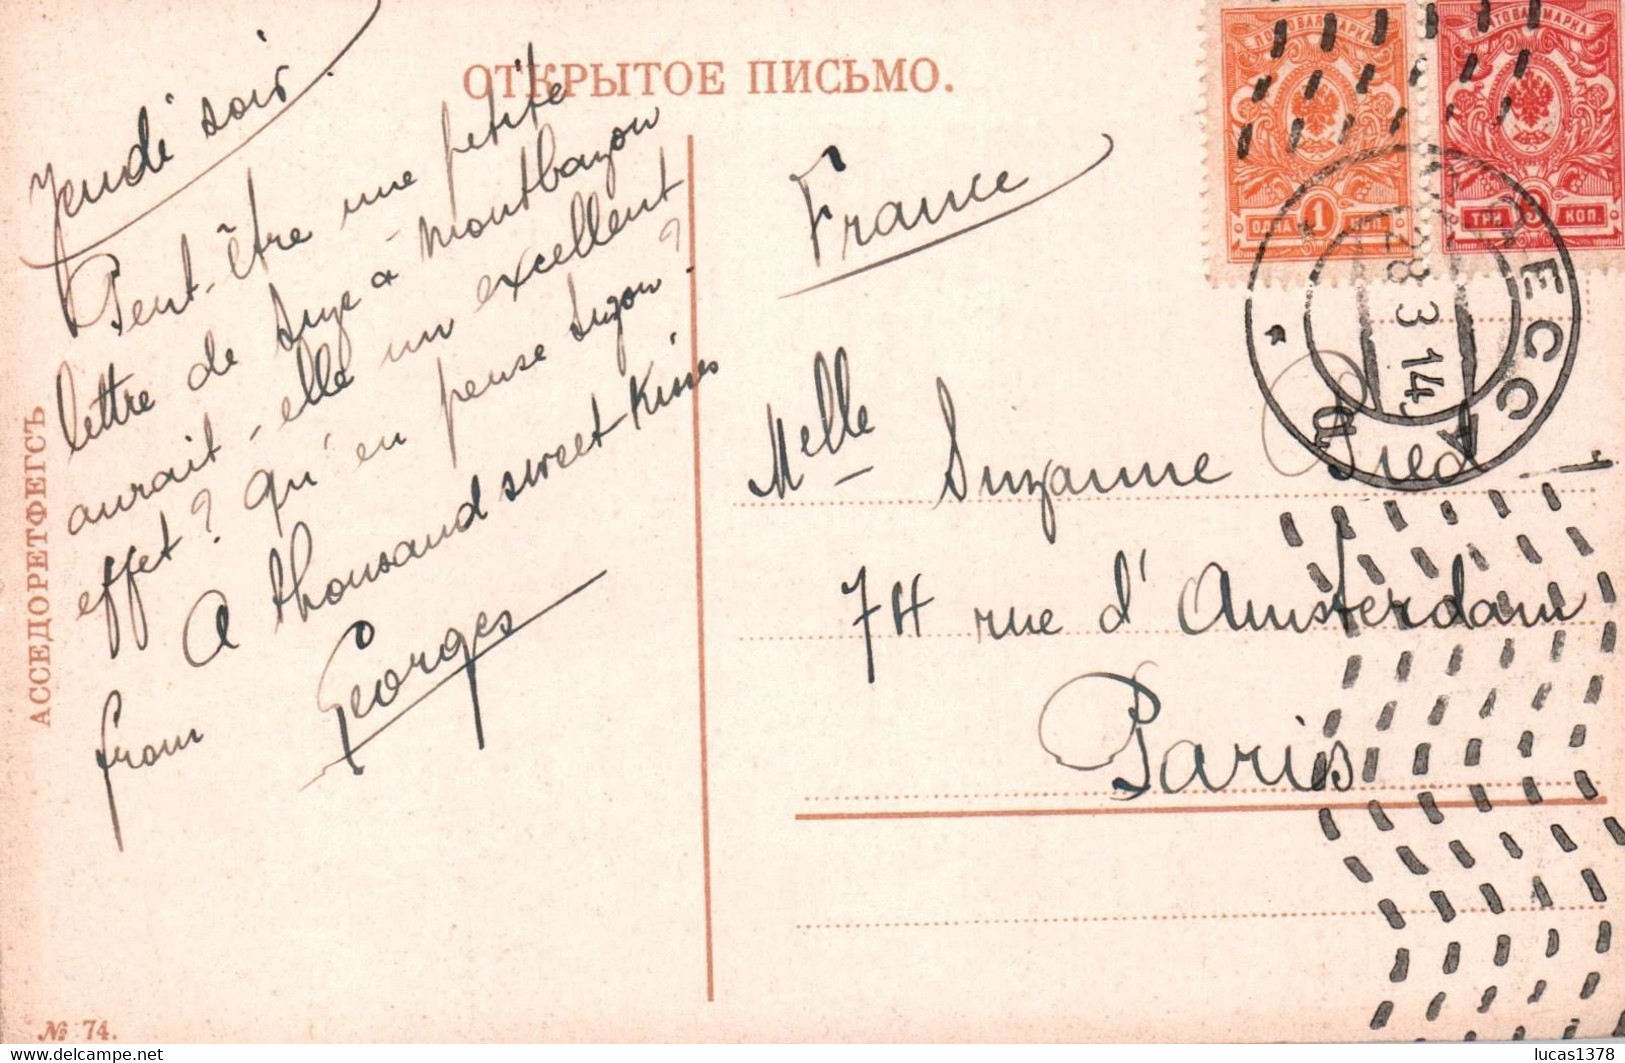 ОТКРЫТОЕ ПИСЬМО.
Jeudi soir
Peut-être une petite
lettre de Suze à Montbazon
aurait-elle un excellent
effet? qu'en pense Suzon?
A thousand sweet Kisses
from Georges
АССЕДОРЕТФЕГСЪ
№ 74.
ПОЧТОВАЯ МАРКА
ОДНА 1 КОП.
ПОЧТОВАЯ МАРКА
ТРИ 3 КОП.
ОДЕССА
28 3 14
France
Melle Suzanne
74 rue d'Amsterdam
Paris
lucas1378